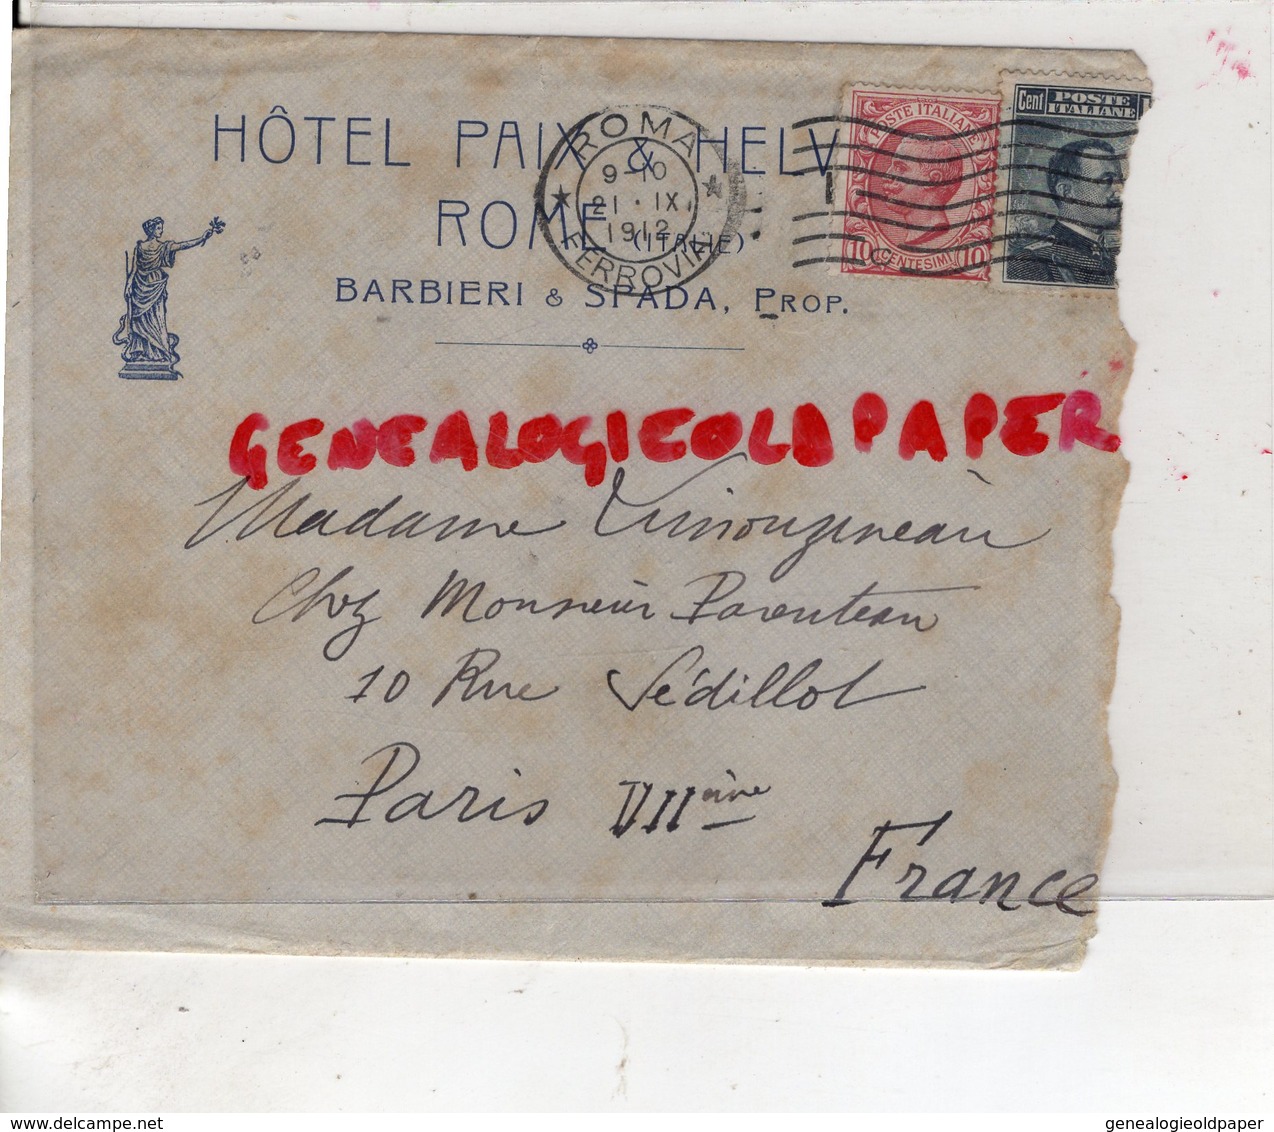 HÔTEL PAIX & HELV
ROME (ITALIE)
BARBIERI & SPADA, PROP.
ROMA
9-10
21·IX
1912
FERROVIA
POSTE ITALIANE
10 CENTESIMI 10
Cent POSTE
ITALIANE
GENEALOGIEOLDPAPER
Madame
Chez Monsieur Parenteau
10 Rue Sédillot
Paris VIIème
France
www.delcampe.net
genealogieoldpaper